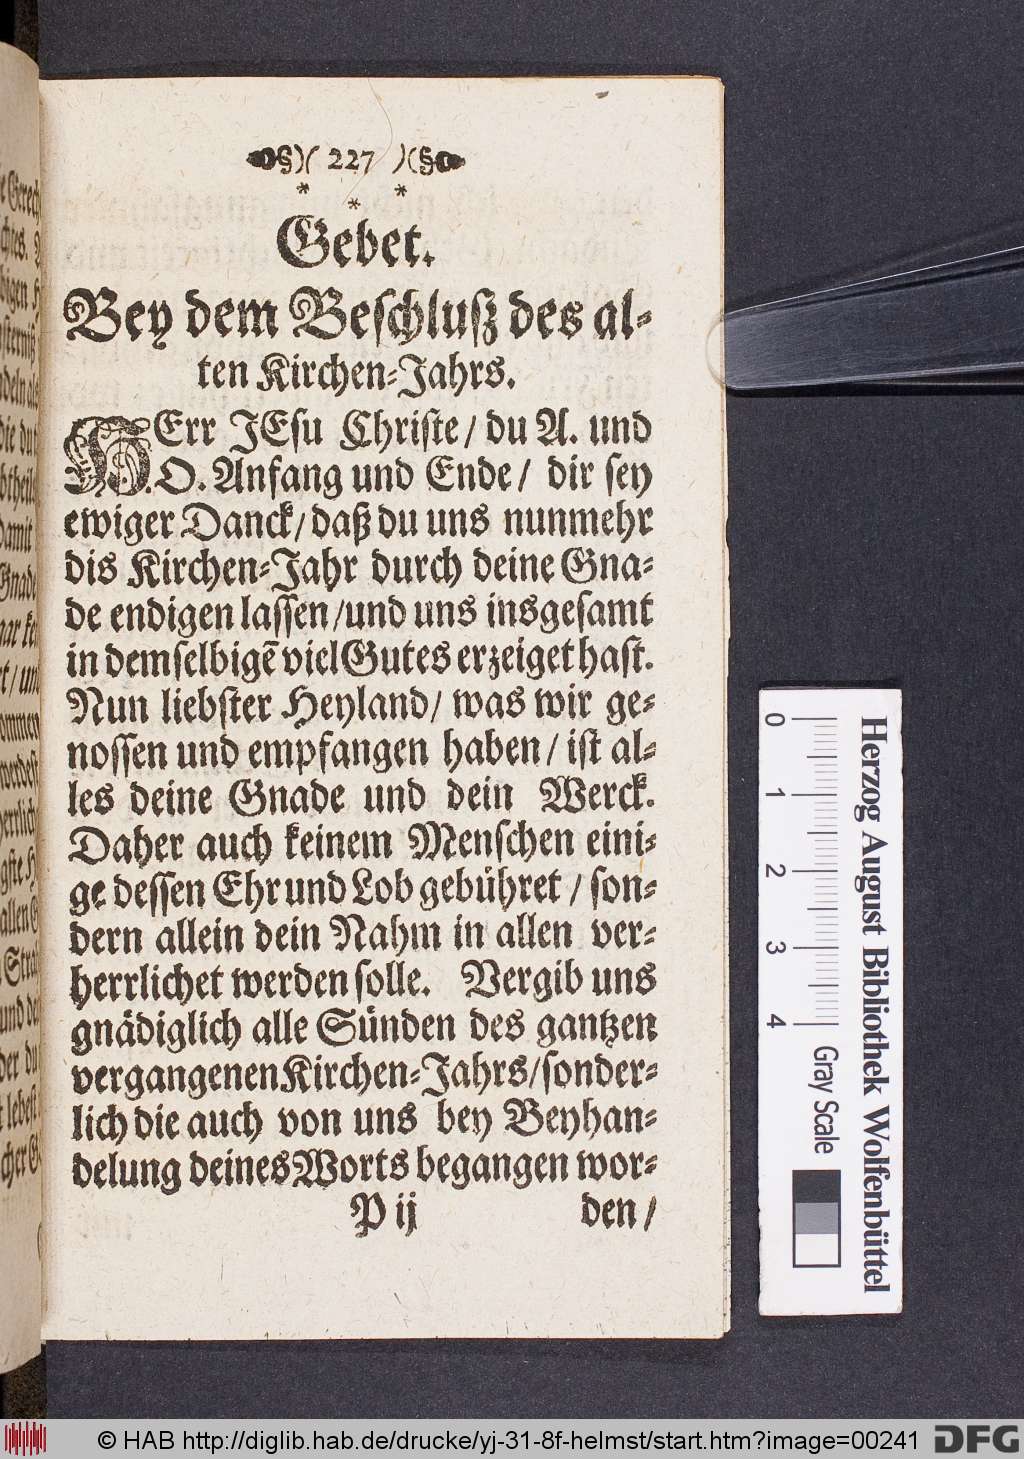 §)( 227 )(§
* * *
Gebet.
Bey dem Beschluß des al-
ten Kirchen-Jahrs.
HErr JEsu Christe / du A. und
O. Anfang und Ende / dir sey
ewiger Danck / daß du uns nunmehr
dis Kirchen-Jahr durch deine Gna-
de endigen lassen / und uns insgesamt
in demselbigē viel Gutes erzeiget hast.
Nun liebster Heyland / was wir ge-
nossen und empfangen haben / ist al-
les deine Gnade und dein Werck.
Daher auch keinem Menschen eini-
ge dessen Ehr und Lob gebühret / son-
dern allein dein Nahm in allen ver-
herrlichet werden solle. Vergib uns
gnädiglich alle Sünden des gantzen
vergangenen Kirchen-Jahrs / sonder-
lich die auch von uns bey Beyhan-
delung deines Worts begangen wor-
P ij den /
Herzog August Bibliothek Wolfenbüttel
0 1 2 3 4 Gray Scale
© HAB http://diglib.hab.de/drucke/yj-31-8f-helmst/start.htm?image=00241
DFG